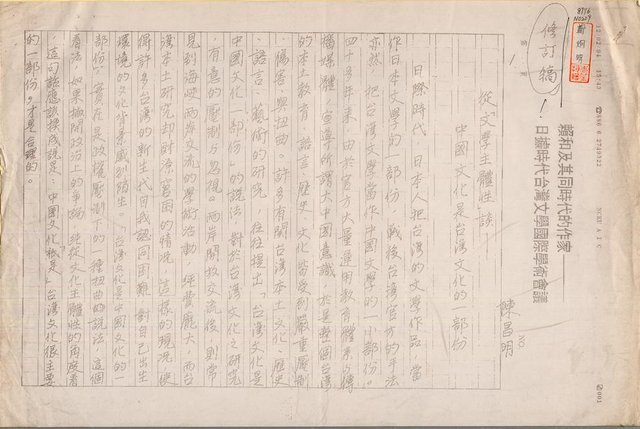 賴和及其同時代的作家
日據時代台灣文學國際學術會議
修訂稿
鄭烱明
從文學主體性談
中國文化是台灣文化的一部份
陳昌明
日據時代,日本人把台灣的文學作品,當
作日本文學的一部份,戰後台灣官方的手法
亦然,把台灣文學當作中國文學的一小部份。
四十多年來,由於官方大量運用教育體系與傳
播媒體,宣導所謂大中國意識,於是整個台灣
的本土教育、語言歷史,皆受到嚴重壓制
、傷害與扭曲。許多有關台灣本土文化、歷史
、語言、藝術的研究,往往提出「台灣文化是
中國文化一部份」的說法,對於台灣文化之研究
,有意的壓制與忽視。兩岸開放交流後,則常
見到海峽兩岸交流的學術活動,經費龐大,而台
灣本土研究卻時常窘困的情況,這樣的現況,使
得許多台灣的新生代自我認同困難,對自己出生
環境的文化背景感到陌生。「台灣文化是中國文化的一
部份」,實在是政權壓制下的一種扭曲的說法,這個
看法,如果撇開政治上的爭端,純從文化主體性的角度看
,這句話應該換成說是:「中國文化祇是台灣文化很主要
的一部份。」才是合理的。